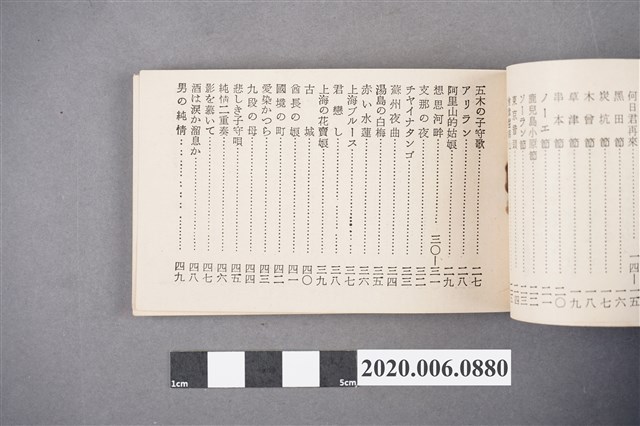 何日君再來……一四—一五
黑田節……一六
炭坑節……一七
木曾節……一八
草津節……一九
串本節……二〇
ノーエ節……二一
鹿兒島小原節……二二
ソーラン節……二三
五木の子守歌……二七
アリラン……二八
阿里山的姑娘……二九
想思河畔……三〇—三一
支那の夜……三二
チヤイナタンゴ……三三
蘇州夜曲……三四
湯島の白梅……三五
赤い水蓮……三六
上海ブルース……三七
君戀し……三八
上海の花賣娘……三九
古城……四〇
酋長の娘……四一
國境の町……四二
愛染かつら……四三
九段の母……四四
悲しき子守唄……四五
純情二重奏……四六
影を慕いて……四七
酒は淚か溜息か……四八
男の純情……四九
1cm
5cm
2020.006.0880